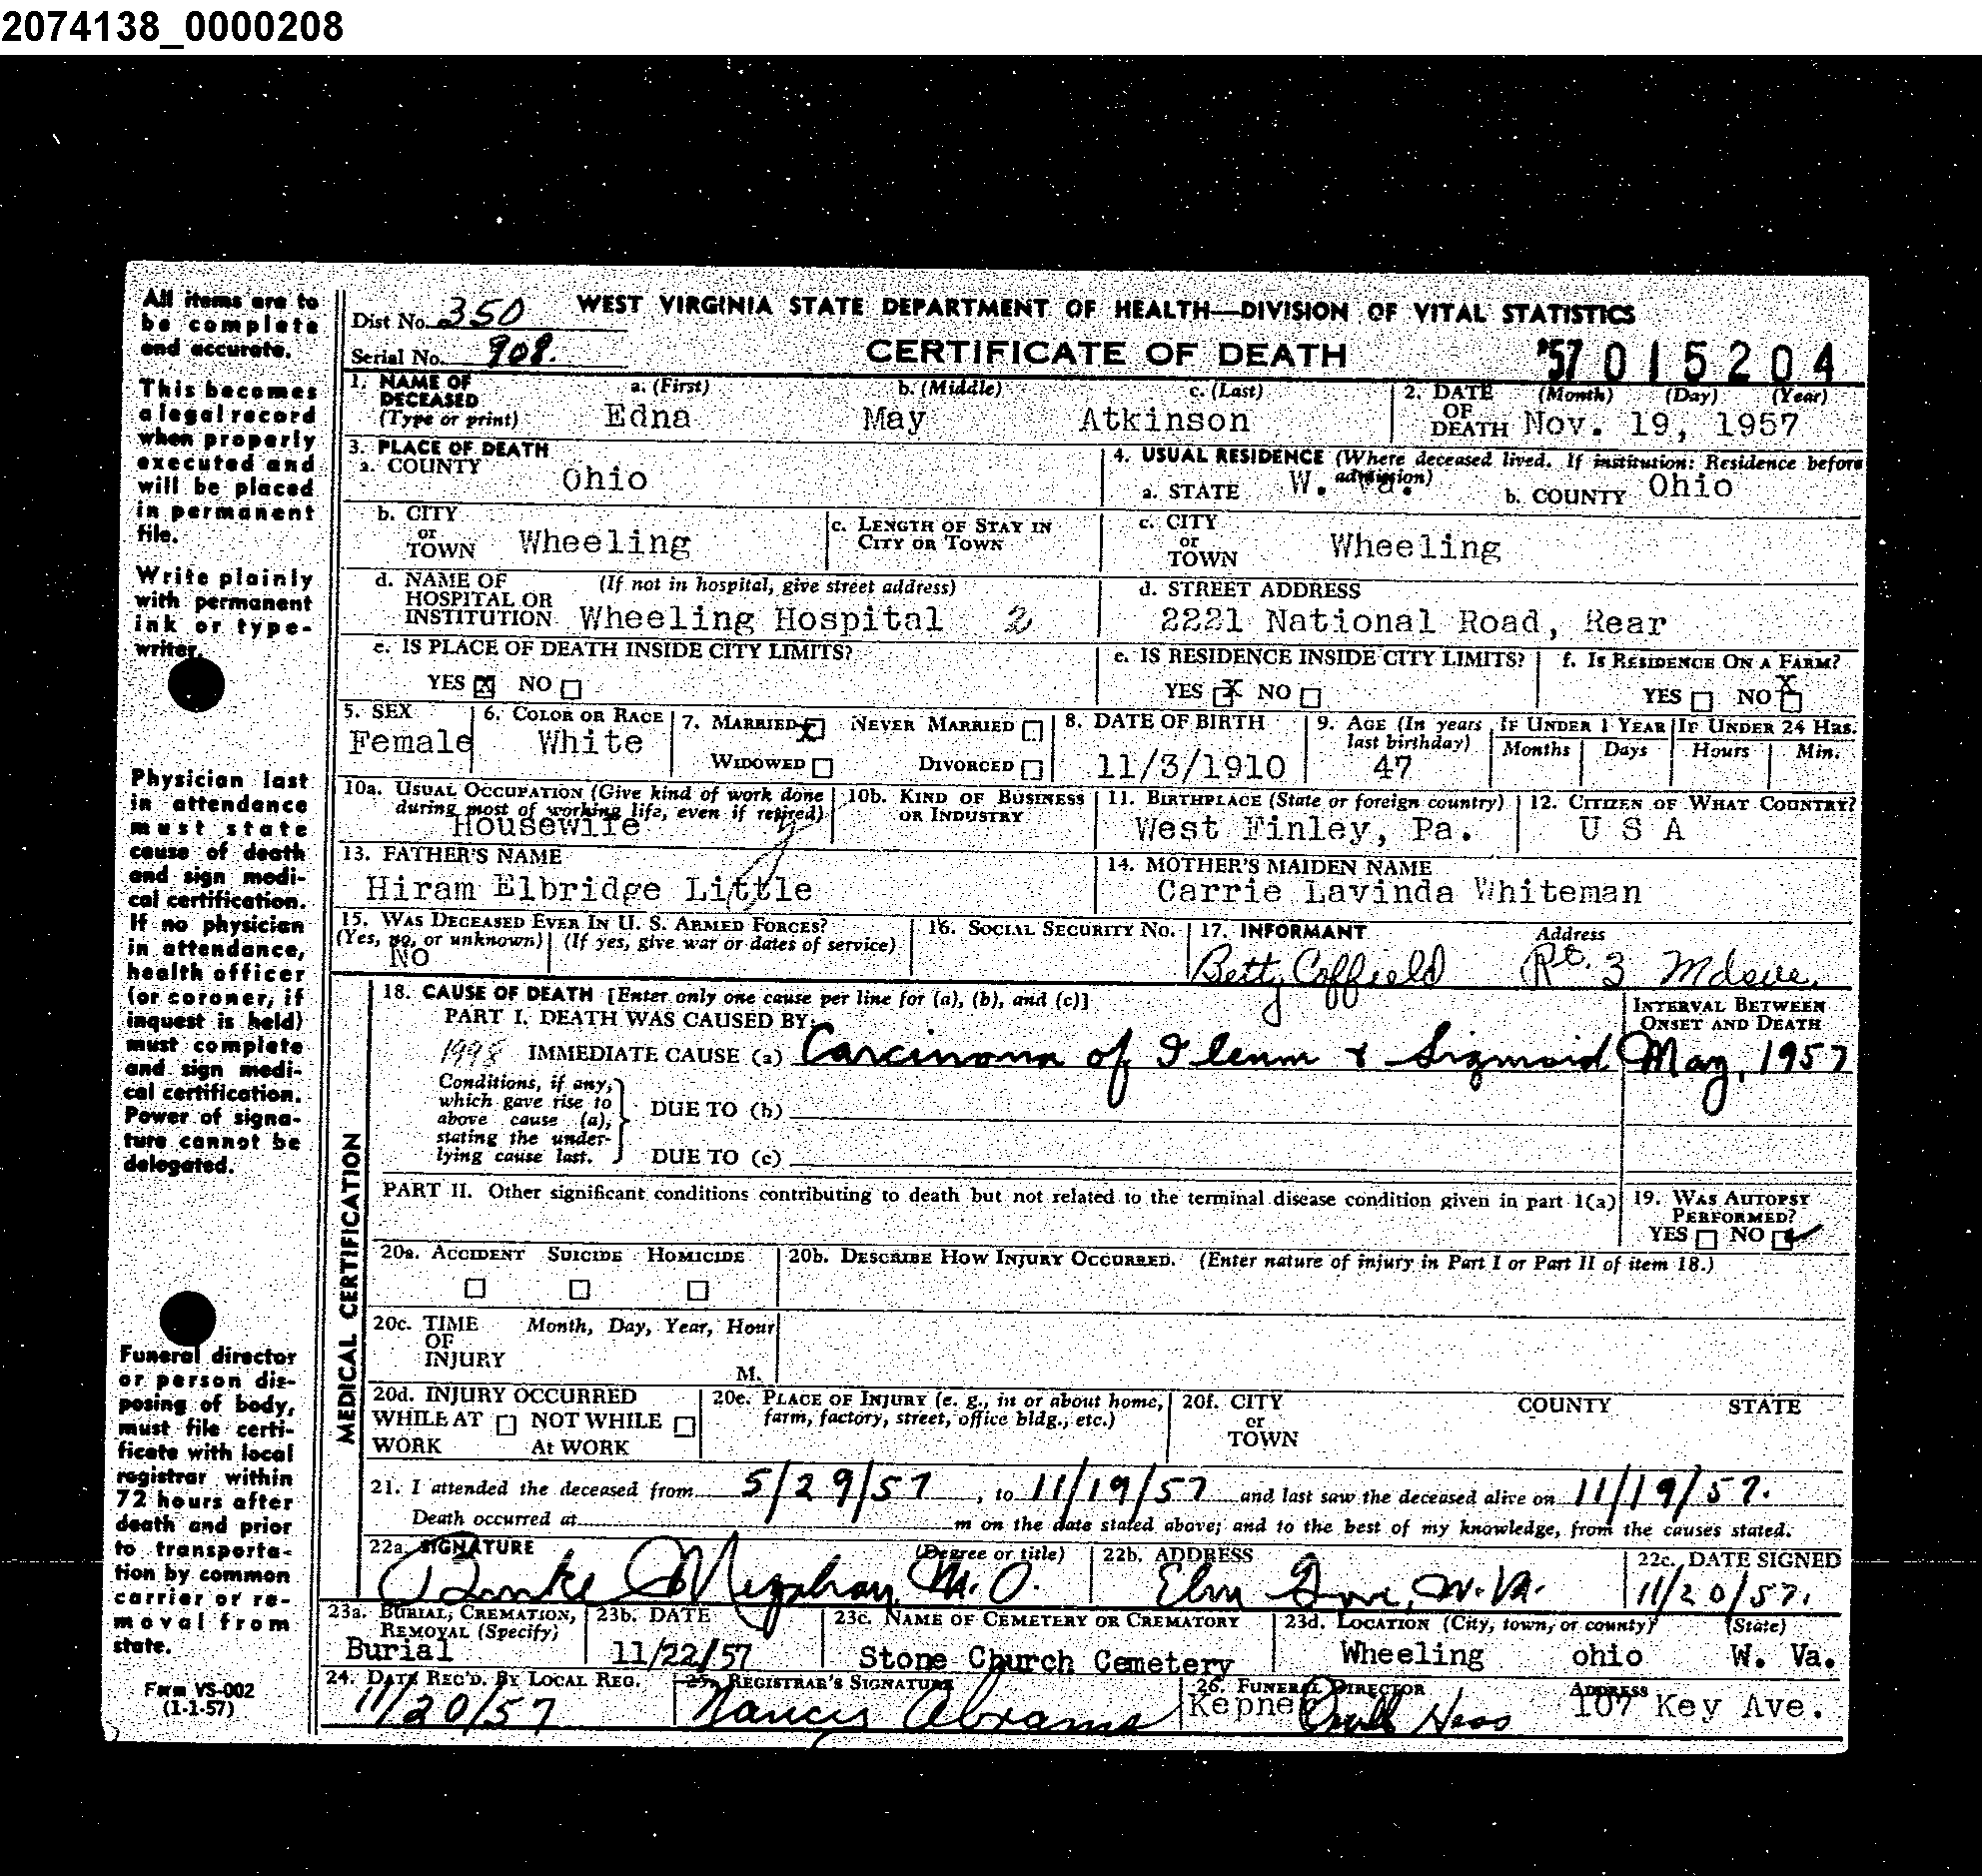 2074138_0000208
All items are to
be complete
and accurate.
This becomes
a legal record
when properly
executed and
will be placed
in permanent
file.
Write plainly
with permanent
ink or type-
writer.
Physician last
in attendance
must state
cause of death
and sign medi-
cal certification.
If no physician
in attendance,
health officer
(or coroner, if
inquest is held)
must complete
and sign medi-
cal certification.
Power of signa-
ture cannot be
delegated.
Funeral director
or person dis-
posing of body,
must file certi-
ficate with local
registrar within
72 hours after
death and prior
to transporta-
tion by common
carrier or re-
moval from
state.
Form VS-002
(1-1-57)
Dist No. 350 WEST VIRGINIA STATE DEPARTMENT OF HEALTH—DIVISION OF VITAL STATISTICS
Serial No. 908. CERTIFICATE OF DEATH '57 015204
1. NAME OF DECEASED (Type or print) a. (First) b. (Middle) c. (Last) 2. DATE OF DEATH (Month) (Day) (Year)
Edna May Atkinson Nov. 19, 1957
3. PLACE OF DEATH 4. USUAL RESIDENCE (Where deceased lived. If institution: Residence before admission)
a. COUNTY Ohio a. STATE W. Va. b. COUNTY Ohio
b. CITY or TOWN Wheeling c. LENGTH OF STAY IN CITY OR TOWN c. CITY or TOWN Wheeling
d. NAME OF HOSPITAL OR INSTITUTION (If not in hospital, give street address) d. STREET ADDRESS
Wheeling Hospital 2 2221 National Road, Rear
e. IS PLACE OF DEATH INSIDE CITY LIMITS? e. IS RESIDENCE INSIDE CITY LIMITS? f. IS RESIDENCE ON A FARM?
YES X NO YES X NO YES NO X
5. SEX 6. COLOR OR RACE 7. MARRIED X NEVER MARRIED 8. DATE OF BIRTH 9. AGE (In years last birthday) IF UNDER 1 YEAR IF UNDER 24 HRS.
Months Days Hours Min.
Female White WIDOWED DIVORCED 11/3/1910 47
10a. USUAL OCCUPATION (Give kind of work done during most of working life, even if retired) 10b. KIND OF BUSINESS OR INDUSTRY 11. BIRTHPLACE (State or foreign country) 12. CITIZEN OF WHAT COUNTRY?
Housewife West Finley, Pa. U S A
13. FATHER'S NAME 14. MOTHER'S MAIDEN NAME
Hiram Elbridge Little Carrie Lavinda Whiteman
15. WAS DECEASED EVER IN U. S. ARMED FORCES? 16. SOCIAL SECURITY NO. 17. INFORMANT Address
(Yes, no, or unknown) (If yes, give war or dates of service)
NO Betty Coffield Rt. 3
18. CAUSE OF DEATH [Enter only one cause per line for (a), (b), and (c)] INTERVAL BETWEEN ONSET AND DEATH
PART I. DEATH WAS CAUSED BY:
IMMEDIATE CAUSE (a) Carcinoma of Ileum & Sigmoid May, 1957
Conditions, if any,
which gave rise to DUE TO (b)
above cause (a),
stating the under-
lying cause last. DUE TO (c)
PART II. Other significant conditions contributing to death but not related to the terminal disease condition given in part 1(a) 19. WAS AUTOPSY PERFORMED?
YES NO ✓
20a. ACCIDENT SUICIDE HOMICIDE 20b. DESCRIBE HOW INJURY OCCURRED. (Enter nature of injury in Part I or Part II of item 18.)
20c. TIME OF INJURY Month, Day, Year, Hour
M.
20d. INJURY OCCURRED 20e. PLACE OF INJURY (e. g., in or about home, farm, factory, street, office bldg., etc.) 20f. CITY or TOWN COUNTY STATE
WHILE AT WORK NOT WHILE At WORK
MEDICAL CERTIFICATION
21. I attended the deceased from 5/29/57, to 11/19/57 and last saw the deceased alive on 11/19/57.
Death occurred at m on the date stated above; and to the best of my knowledge, from the causes stated.
22a. SIGNATURE (Degree or title) 22b. ADDRESS 22c. DATE SIGNED
M.D. Elm Grove, W. VA. 11/20/57.
23a. BURIAL, CREMATION, REMOVAL (Specify) 23b. DATE 23c. NAME OF CEMETERY OR CREMATORY 23d. LOCATION (City, town, or county) (State)
Burial 11/22/57 Stone Church Cemetery Wheeling ohio W. Va.
24. DATE REC'D. BY LOCAL REG. 25. REGISTRAR'S SIGNATURE 26. FUNERAL DIRECTOR ADDRESS
11/20/57 Nancy Abrams Kepner Hess 107 Key Ave.